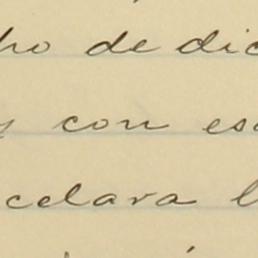 ho de dic
y con es
celara l